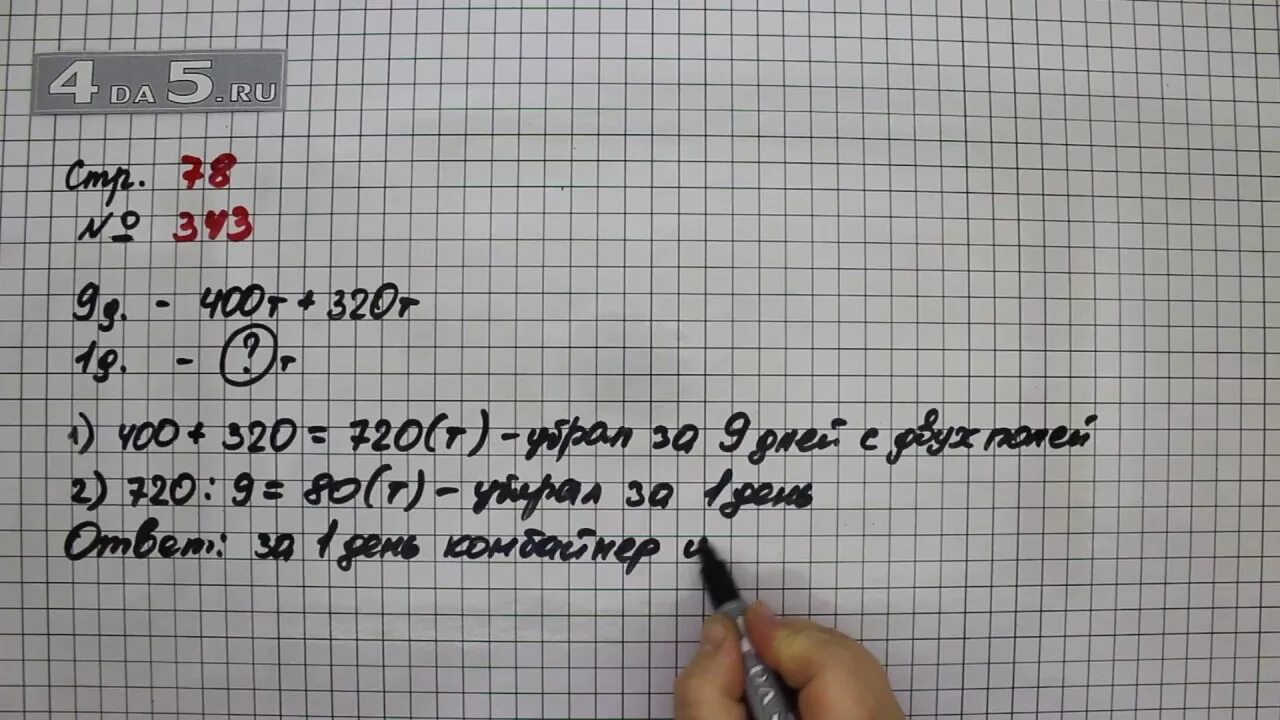 4DA5.RU
Стр. 78
№ 343
9д. - 400т + 320т
1д. - ? т
1) 400 + 320 = 720(т) - убрал за 9 дней с двух полей
2) 720 : 9 = 80(т) - убирал за 1 день
Ответ: за 1 день комбайнер у